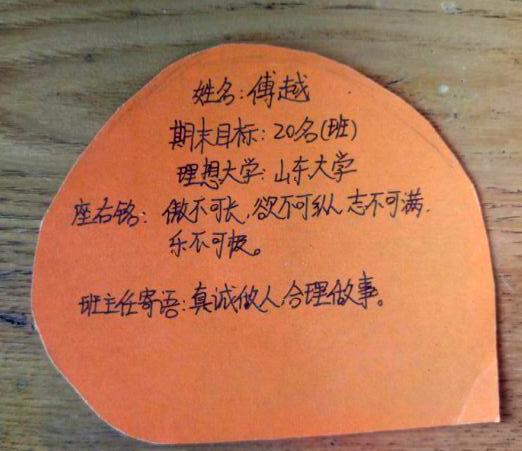 姓名:傅越
期末目标:20名(班)
理想大学:山东大学
座右铭:傲不可长,欲不可纵,志不可满.
乐不可极。
班主任寄语:真诚做人,合理做事。